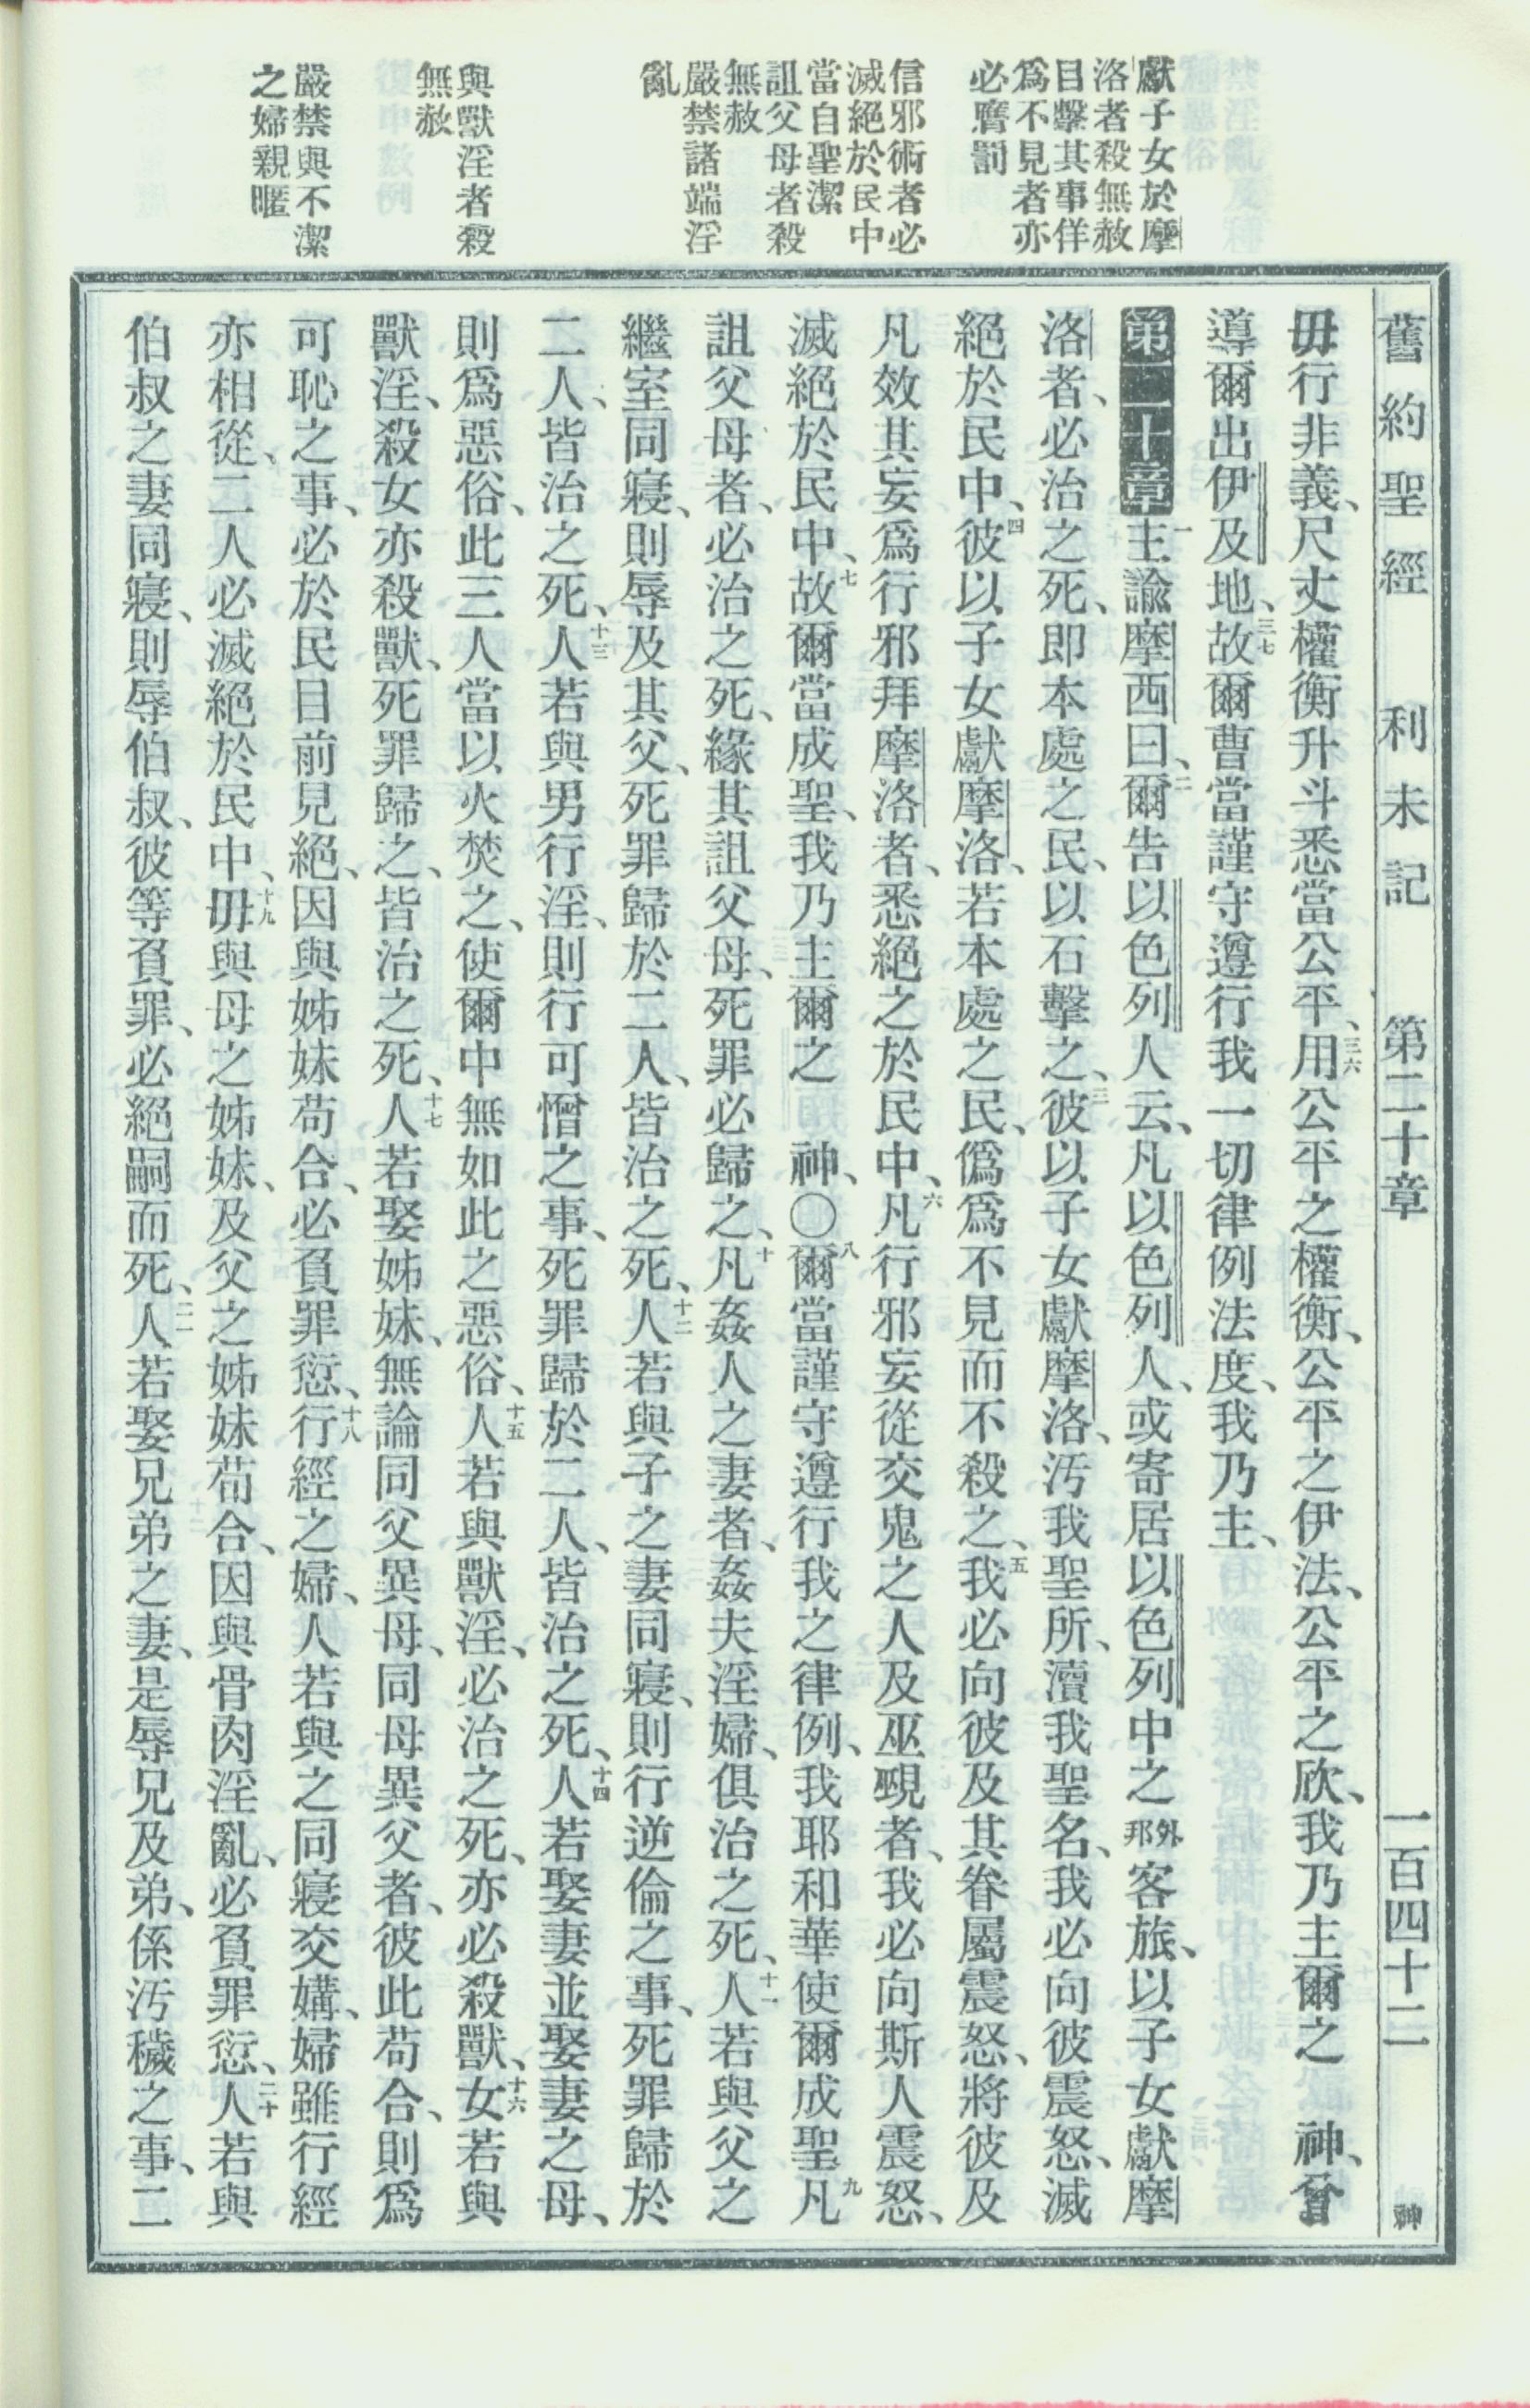 獻子女於摩
洛者殺無赦
目擊其事佯
爲不見者亦
必膺罰
信邪術者必
滅絕於民中
當自聖潔
詛父母者殺
無赦
嚴禁諸端淫
亂
與獸淫者殺
無赦
嚴禁與不潔
之婦親暱
舊約聖經 利未記 第二十章 一百四十二 神
毋行非義、尺丈權衡升斗悉當公平、三六用公平之權衡、公平之伊法、公平之欣、我乃主爾之 神、曾
導爾出伊及地、三七故爾曹當謹守遵行我一切律例法度、我乃主、
第二十章一主諭摩西曰、二爾告以色列人云、凡以色列人、或寄居以色列中之外邦客旅、以子女獻摩
洛者、必治之死、即本處之民、以石擊之、三彼以子女獻摩洛、汚我聖所、瀆我聖名、我必向彼震怒、滅
絕於民中、四彼以子女獻摩洛、若本處之民、僞爲不見而不殺之、五我必向彼及其眷屬震怒、將彼及
凡效其妄爲行邪拜摩洛者、悉絕之於民中、六凡行邪妄從交鬼之人及巫覡者、我必向斯人震怒、
滅絕於民中、七故爾當成聖、我乃主爾之 神、〇八爾當謹守遵行我之律例、我耶和華使爾成聖九凡
詛父母者、必治之死、緣其詛父母、死罪必歸之、十凡姦人之妻者、姦夫淫婦、俱治之死、十一人若與父之
繼室同寢、則辱及其父、死罪歸於二人、皆治之死、十二人若與子之妻同寢、則行逆倫之事、死罪歸於
二人、皆治之死、十三人若與男行淫、則行可憎之事、死罪歸於二人、皆治之死、十四人若娶妻並娶妻之母、
則爲惡俗、此三人當以火焚之、使爾中無如此之惡俗、十五人若與獸淫、必治之死、亦必殺獸、十六女若與
獸淫、殺女亦殺獸、死罪歸之、皆治之死、十七人若娶姊妹、無論同父異母、同母異父者、彼此苟合、則爲
可恥之事、必於民目前見絕、因與姊妹苟合、必負罪愆、十八行經之婦、人若與之同寢交媾、婦雖行經
亦相從、二人必滅絕於民中、十九毋與母之姊妹、及父之姊妹苟合、因與骨肉淫亂、必負罪愆、二十人若與
伯叔之妻同寢、則辱伯叔、彼等負罪、必絕嗣而死、二一人若娶兄弟之妻、是辱兄及弟、係汚穢之事、二